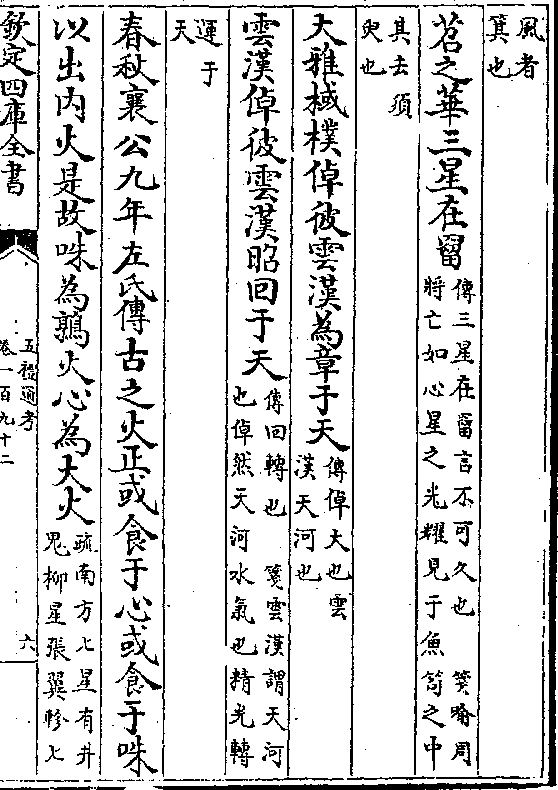 風者
箕也
苕之華三星在罶
傳三星在罶言不可久也　箋喻周
將亡如心星之光耀見于魚笱之中
其去須
臾也
大雅棫樸倬彼雲漢為章于天
傳倬大也雲
漢天河也
雲漢倬彼雲漢昭回于天
傳回轉也　箋雲漢謂天河
也倬然天河水氣也精光轉
運于
天
春秋襄公九年左氏傳古之火正或食于心或食于咮
以出内火是故咮為鶉火心為大火
疏南方七星有井
鬼柳星張翼軫七
欽定四庫全書
五禮通考
卷一百九十二
六